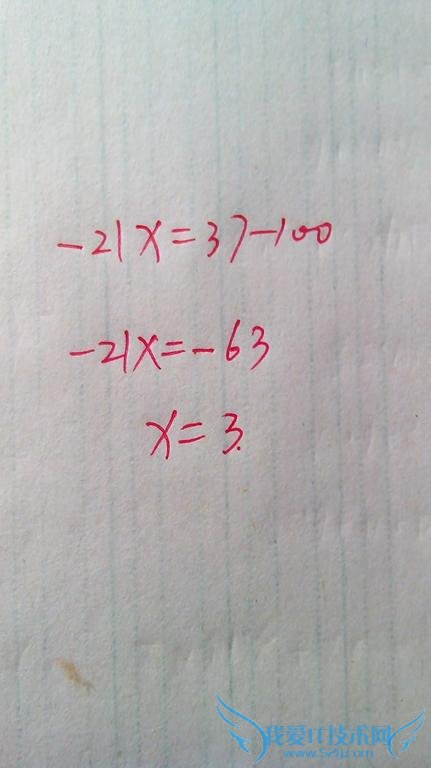 -21x=37-100
-21x=-63
x=3.
我爱IT技术网
www.52ij.com